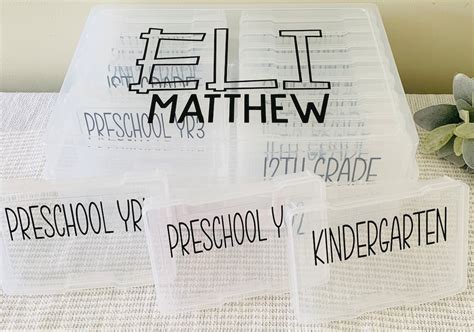 ELI
MATTHEW
PRESCHOOL YR3
12TH GRADE
PRESCHOOL YR
PRESCHOOL Y
KINDERGARTEN